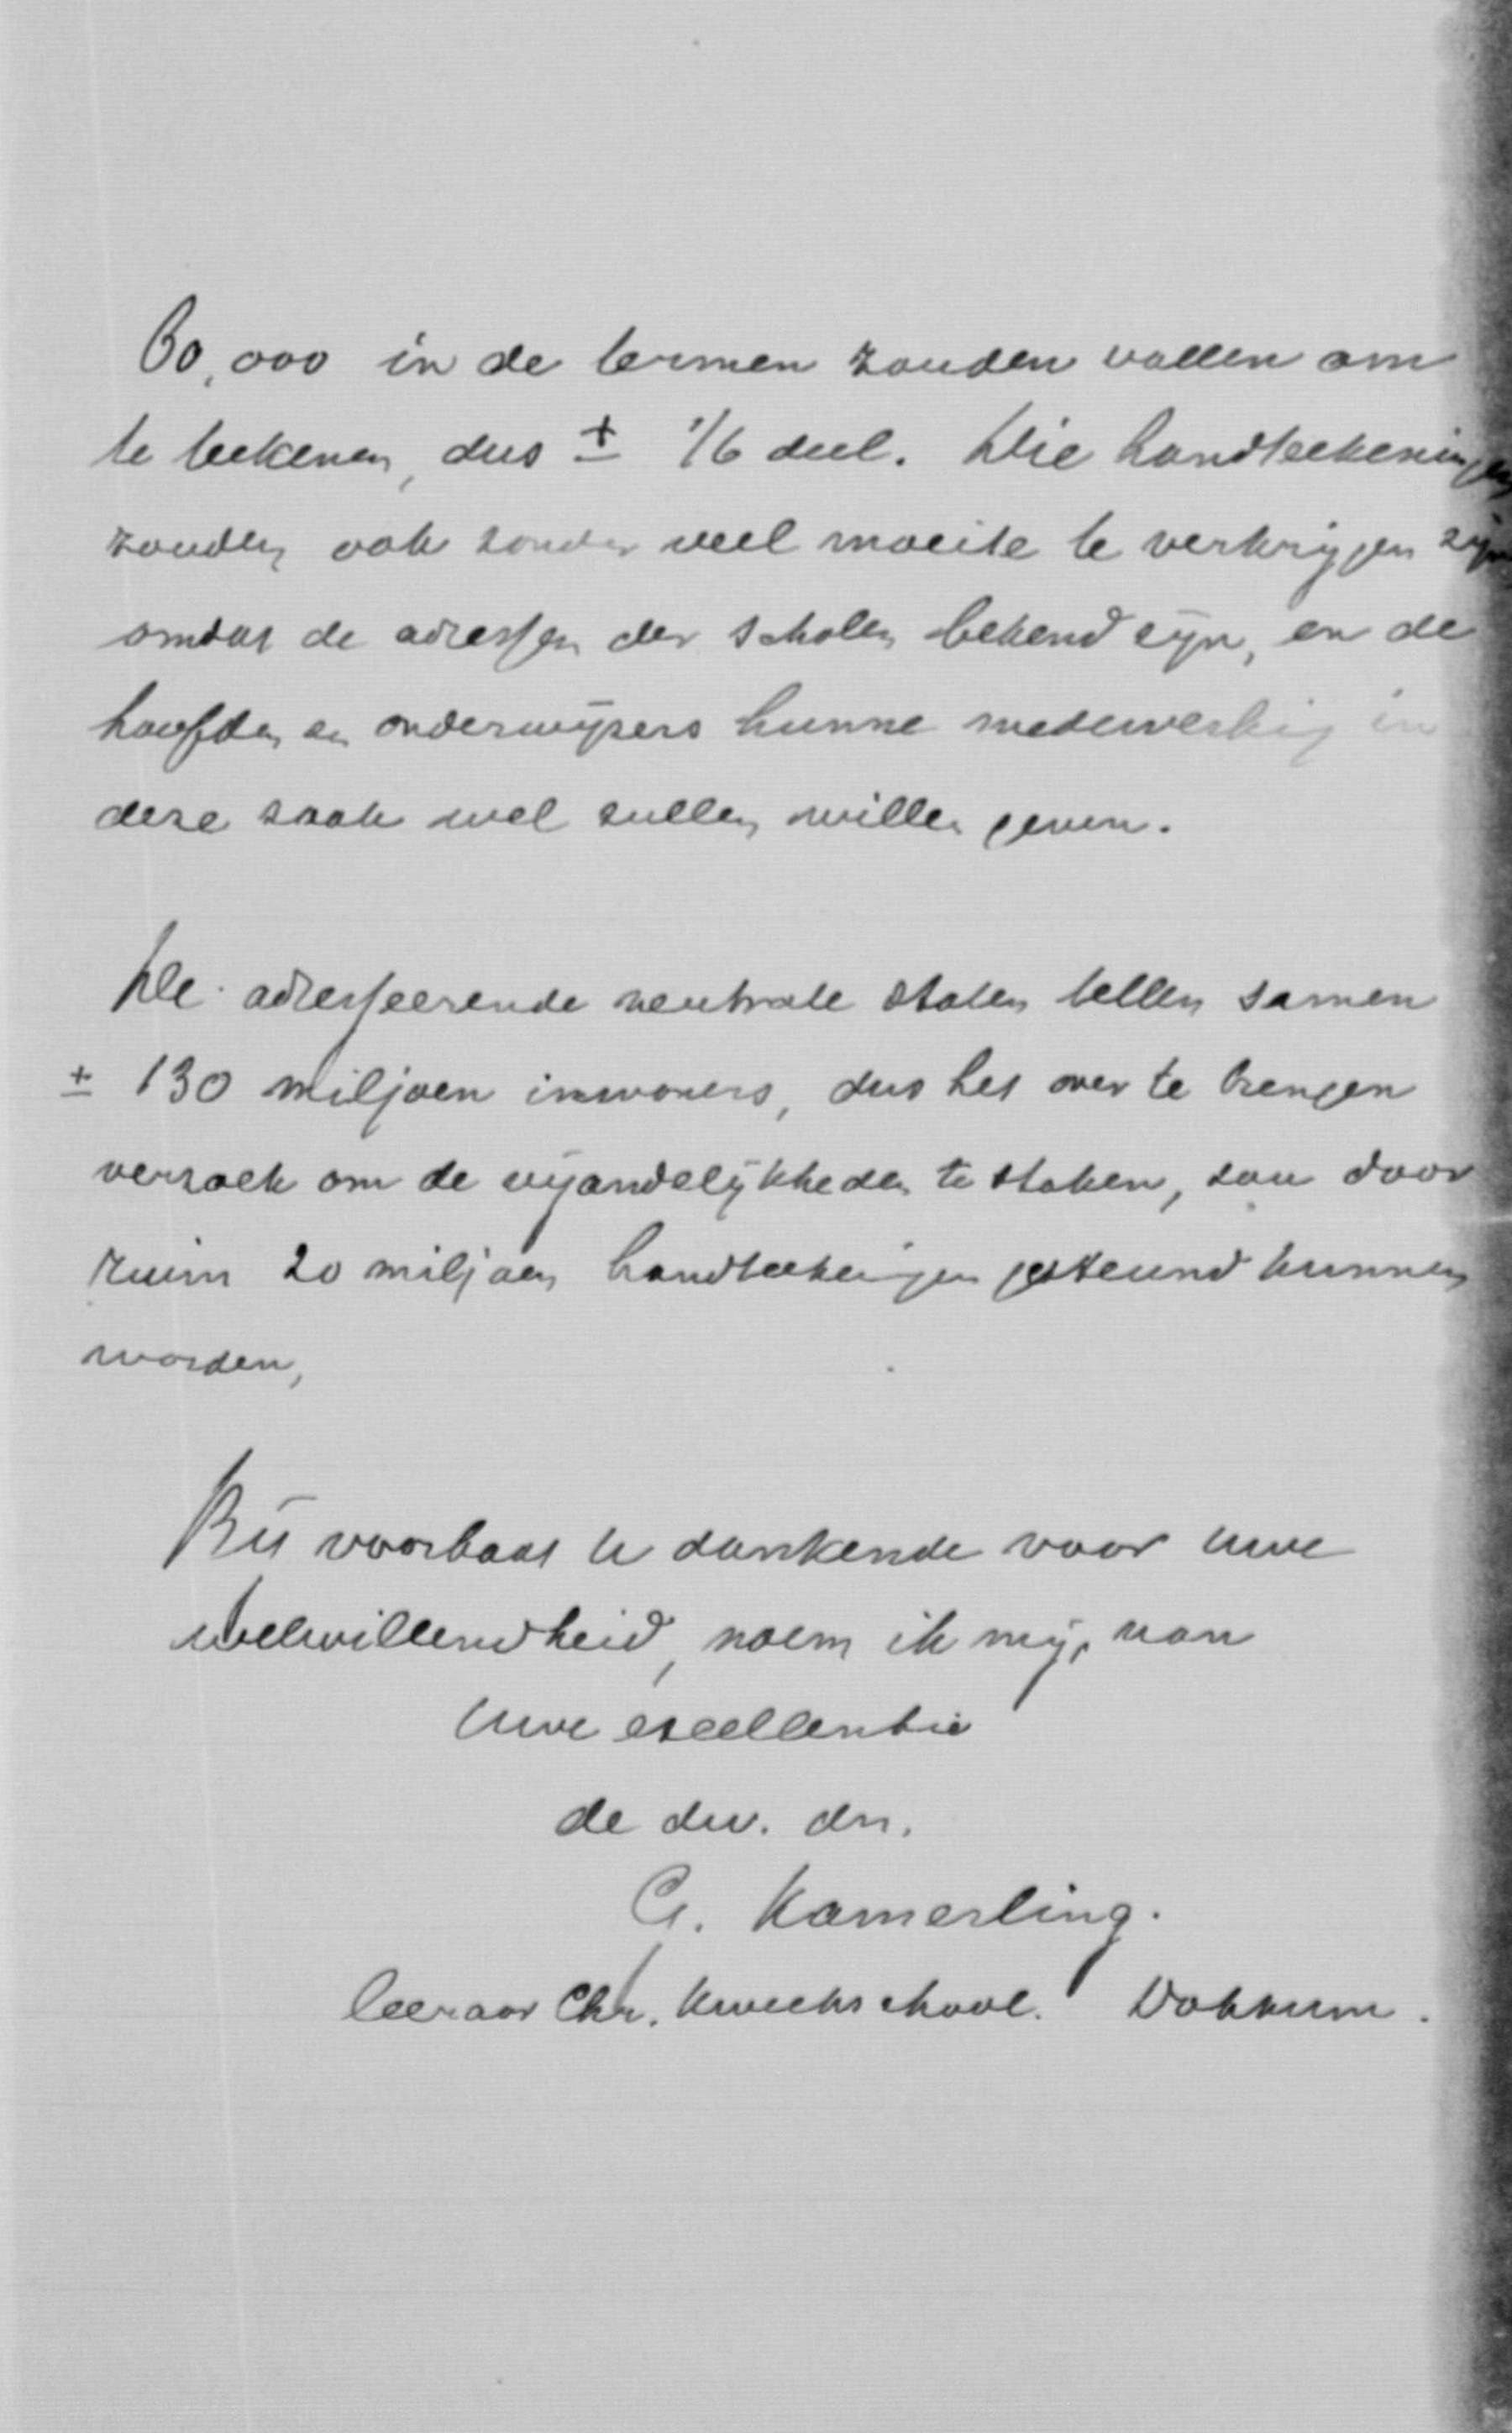 60,000 in de termen zouden vallen om
te teekenen, dus ± 1/6 deel. Die handteekeningen
zouden ook zonder veel moeite te verkrijgen zijn
omdat de adressen der scholen bekend zijn, en de
hoofden en onderwijzers hunne medewerking in
deze zaak wel zullen willen geven.
De adresseerende neutrale staten tellen samen
± 130 miljoen inwoners, dus het over te brengen
verzoek om de vijandelijkheden te staken, zou door
ruim 20 miljoen handteekeningen gesteund kunnen
worden,
Bij voorbaat U dankende voor uwe
welwillendheid, noem ik mij, van
Uwe excellentie
de dw. dn.
G. Kamerling.
leeraar Chr. Kweekschool. Dokkum.